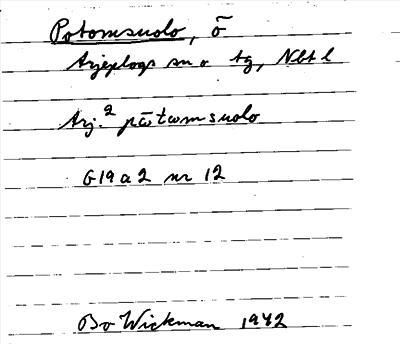 Potomsuolo, ö
Arjeplogs sn o tg, Nbt l
Arj.² pɷ̄tɷmsuolo
G19a2 nr 12
Bo Wickman 1942